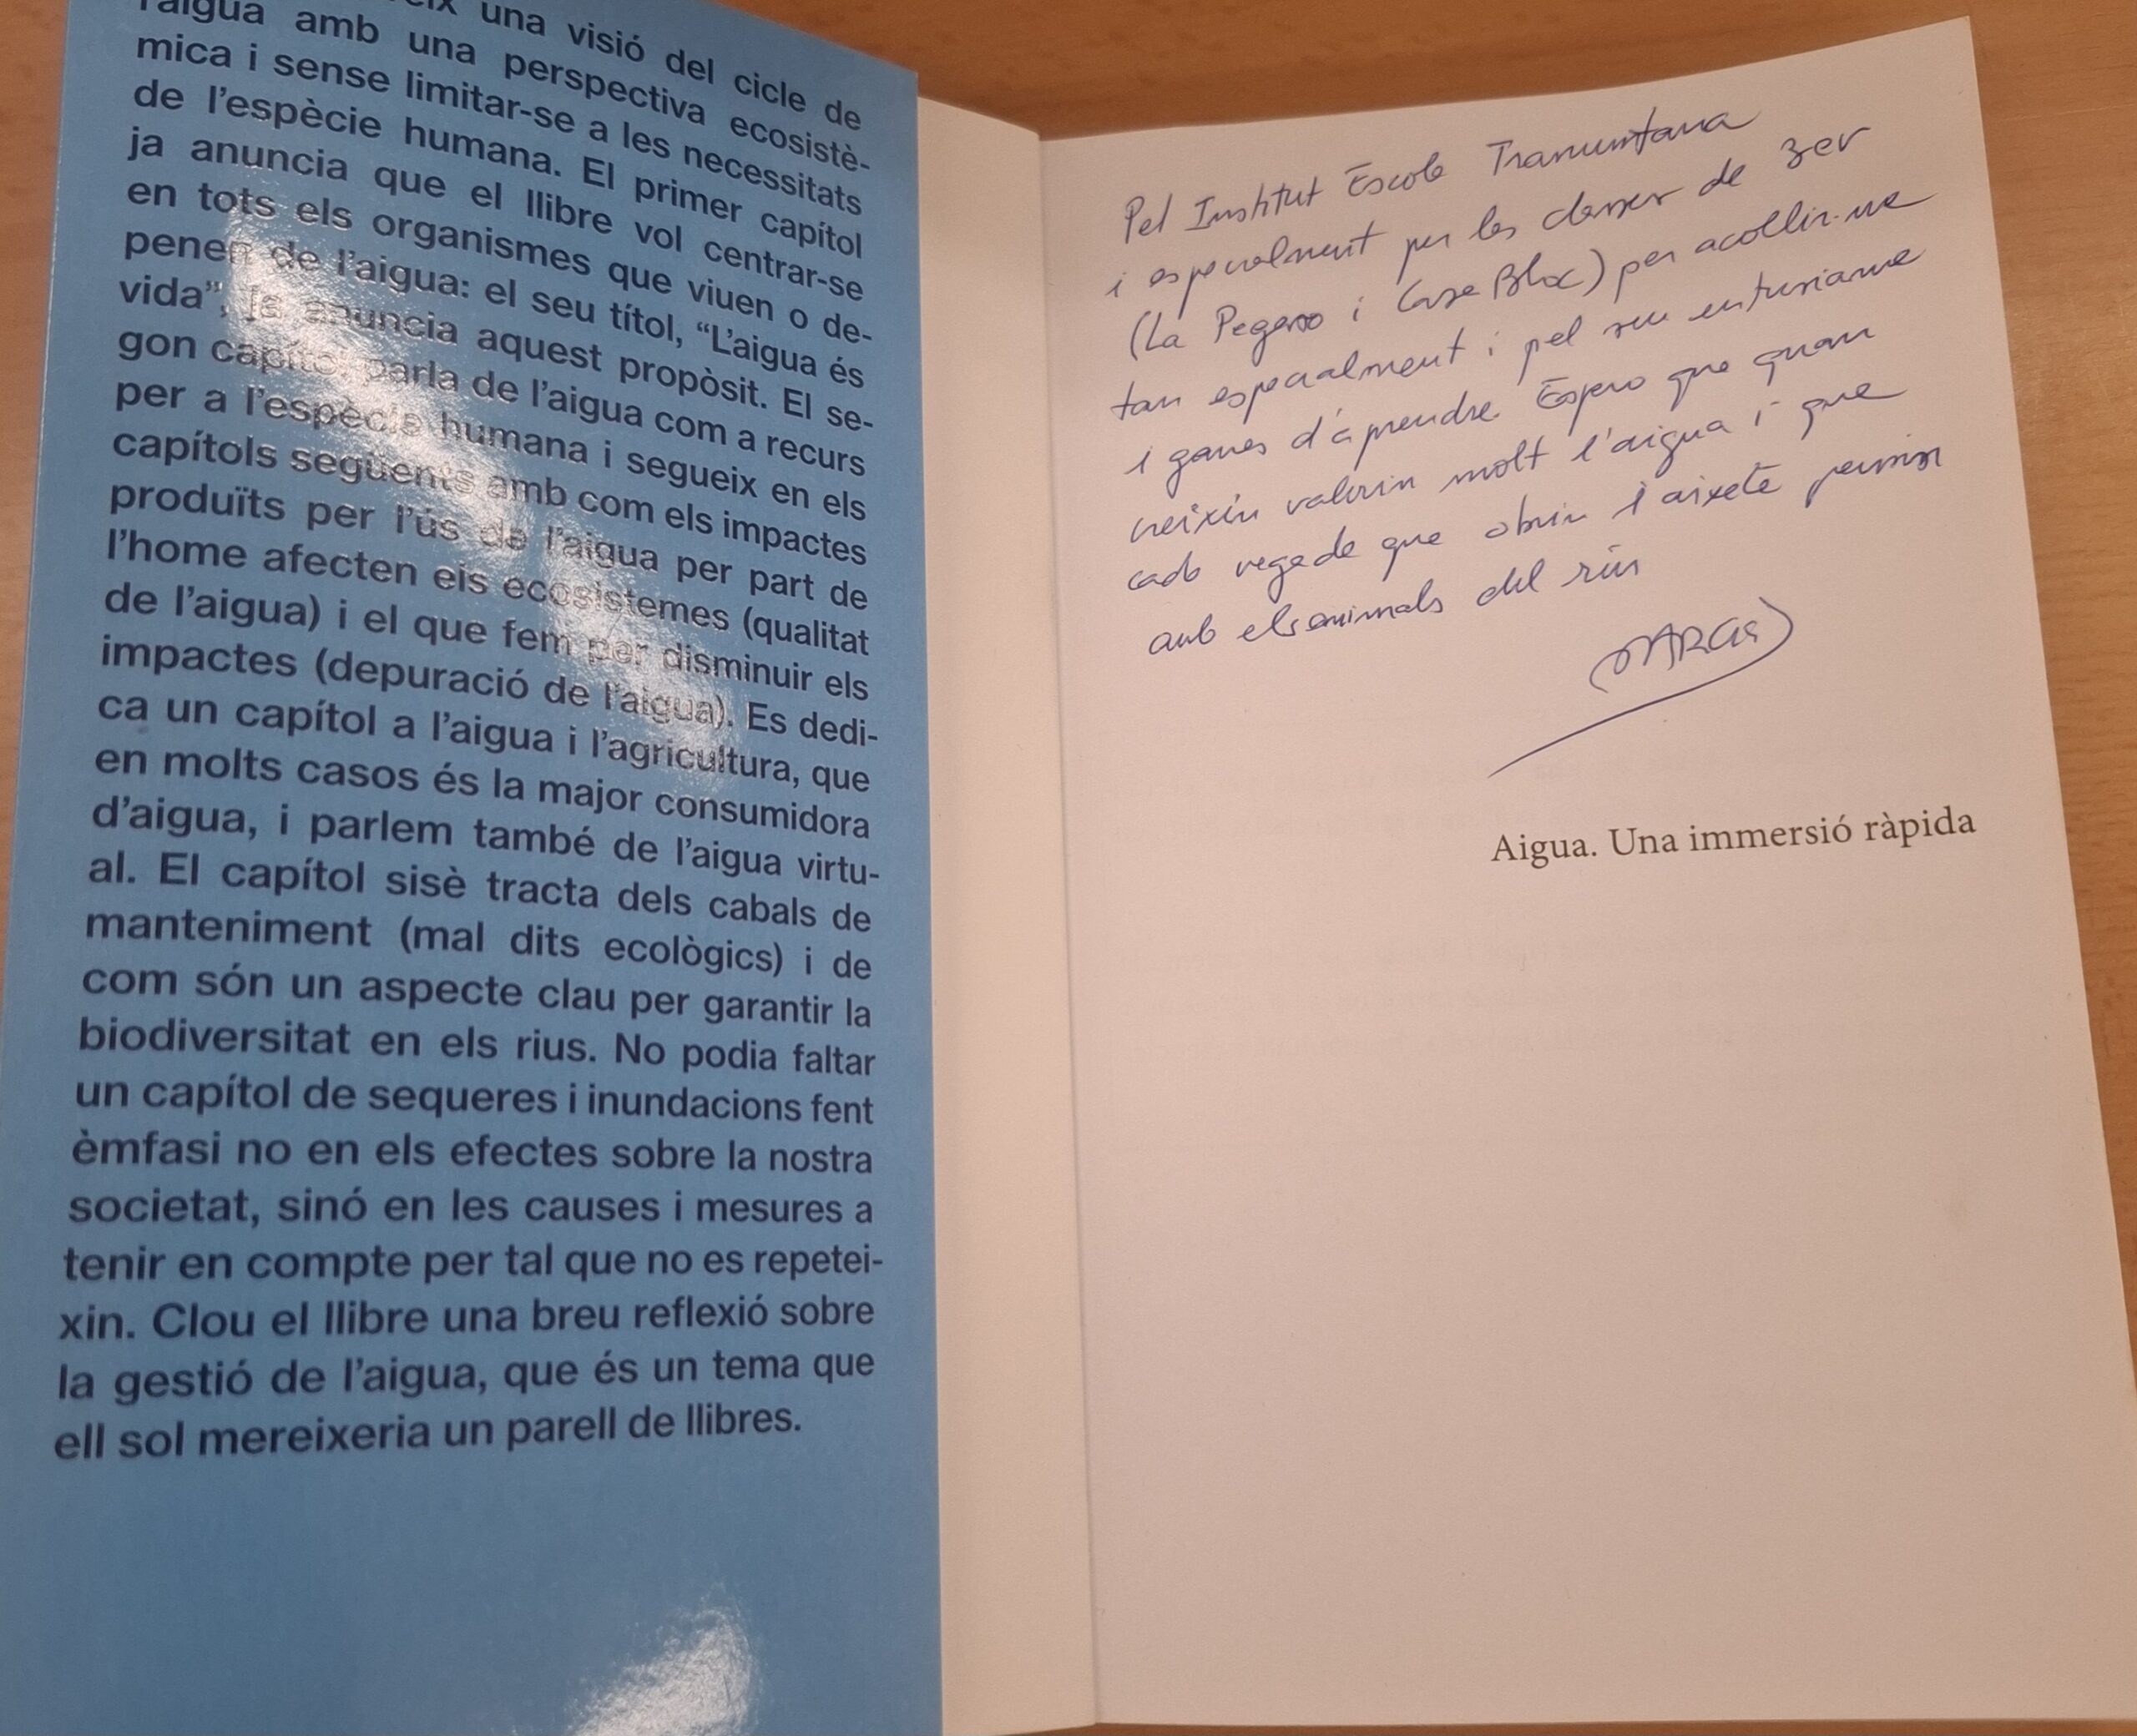 una visió del cicle de
l'aigua amb una perspectiva ecosistè-
mica i sense limitar-se a les necessitats
de l'espècie humana. El primer capítol
ja anuncia que el llibre vol centrar-se
en tots els organismes que viuen o de-
penen de l'aigua: el seu títol, “L'aigua és
vida”, ja anuncia aquest propòsit. El se-
gon capítol parla de l'aigua com a recurs
per a l'espècie humana i segueix en els
capítols següents amb com els impactes
produïts per l'ús de l'aigua per part de
l'home afecten els ecosistemes (qualitat
de l'aigua) i el que fem per disminuir els
impactes (depuració de l'aigua). Es dedi-
ca un capítol a l'aigua i l'agricultura, que
en molts casos és la major consumidora
d'aigua, i parlem també de l'aigua virtu-
al. El capítol sisè tracta dels cabals de
manteniment (mal dits ecològics) i de
com són un aspecte clau per garantir la
biodiversitat en els rius. No podia faltar
un capítol de sequeres i inundacions fent
èmfasi no en els efectes sobre la nostra
societat, sinó en les causes i mesures a
tenir en compte per tal que no es repetei-
xin. Clou el llibre una breu reflexió sobre
la gestió de l'aigua, que és un tema que
ell sol mereixeria un parell de llibres.
Pel Institut Escola Tramuntana
i especialment per les classes de 3er
(La Pegaso i Casa Bloc) per acollir-me
tan especialment i pel seu entusiasme
i ganes d'aprendre. Espero que quan
creixin valorin molt l'aigua i que
cada vegada que obrin l'aixeta pensin
amb els animals del riu
Aigua. Una immersió ràpida